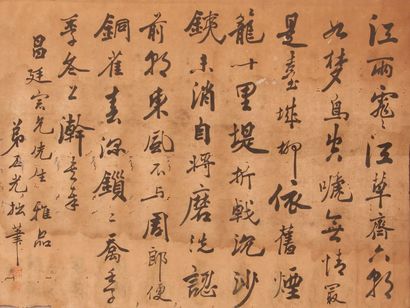 江雨霏〻江草齊六朝
如夢鳥空啼無情最
是臺城柳依舊煙
龍十里堤折戟沉沙
鐵未消自將磨洗認
前朝東風不与周郎便
銅雀春深鎖二喬
冬上澣
昌廷宗兄先生雅品
弟光拙筆